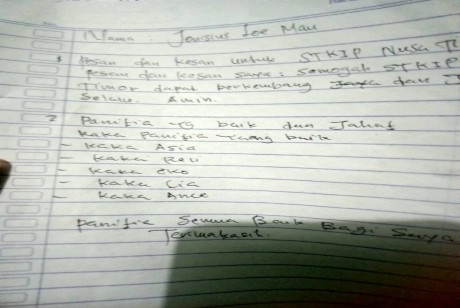 Nama : Jousius Loe Mau
1 Pesan dan kesan untuk STKIP Nusa T
Pesan dan kesan saya : semogah STKIP
Timor dapat berkembang dan J
Selalu. Amin.
2 Panitia yg baik dan Jahat
Kaka panitia yang baik
- Kaka Asia
- Kaka Rei
- Kaka eko
- Kaka Cia
- Kaka Ance
panitia Semua Baik Bagi Saya
Termakasih.